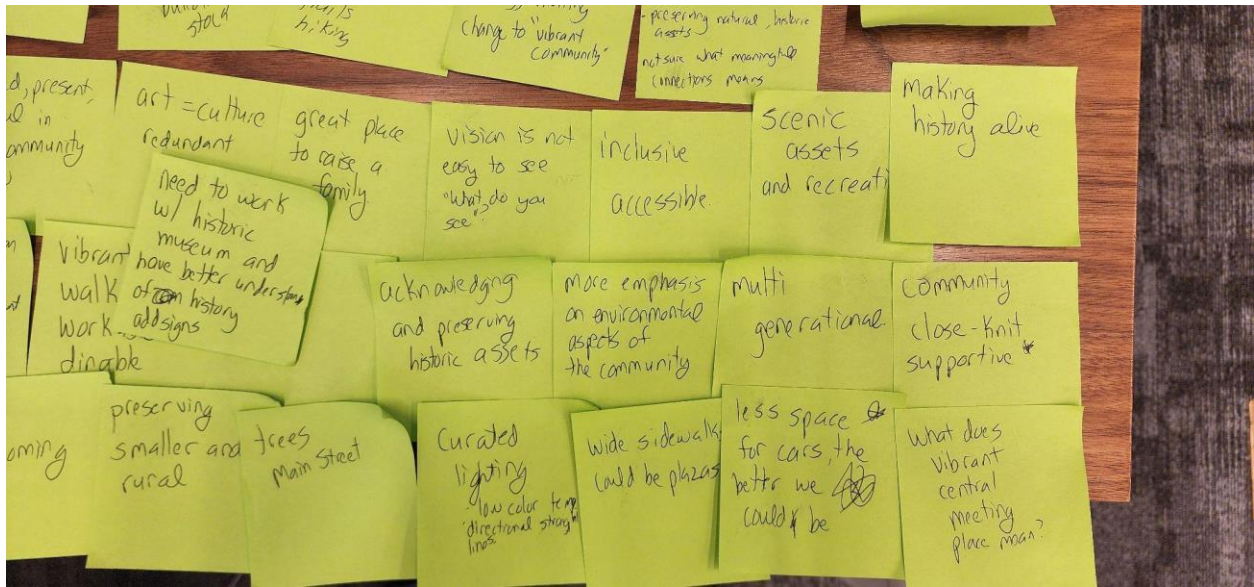 stock
hiking
change to "vibrant
community"
- preserving natural, historic
assets
not sure what meaningful
connections means
present,
in
art = culture
redundant
great place
to raise a
family
vision is not
easy to see
"what do you
see"
inclusive
accessible
scenic
assets
and recreati
making
history alive
need to work
w/ historic
museum and
have better understan
of history
add signs
vibrant
walk
work
dinable
acknowledging
and preserving
historic assets
more emphasis
on environmental
aspects of
the community
multi
generational
community
close-knit
supportive
oming
preserving
smaller and
rural
trees
Main Street
Curated
lighting
low color temp
directional straight
lines
wide sidewalk
could be plazas
less space
for cars, the
better we
could be
What does
vibrant
central
meeting
place mean?